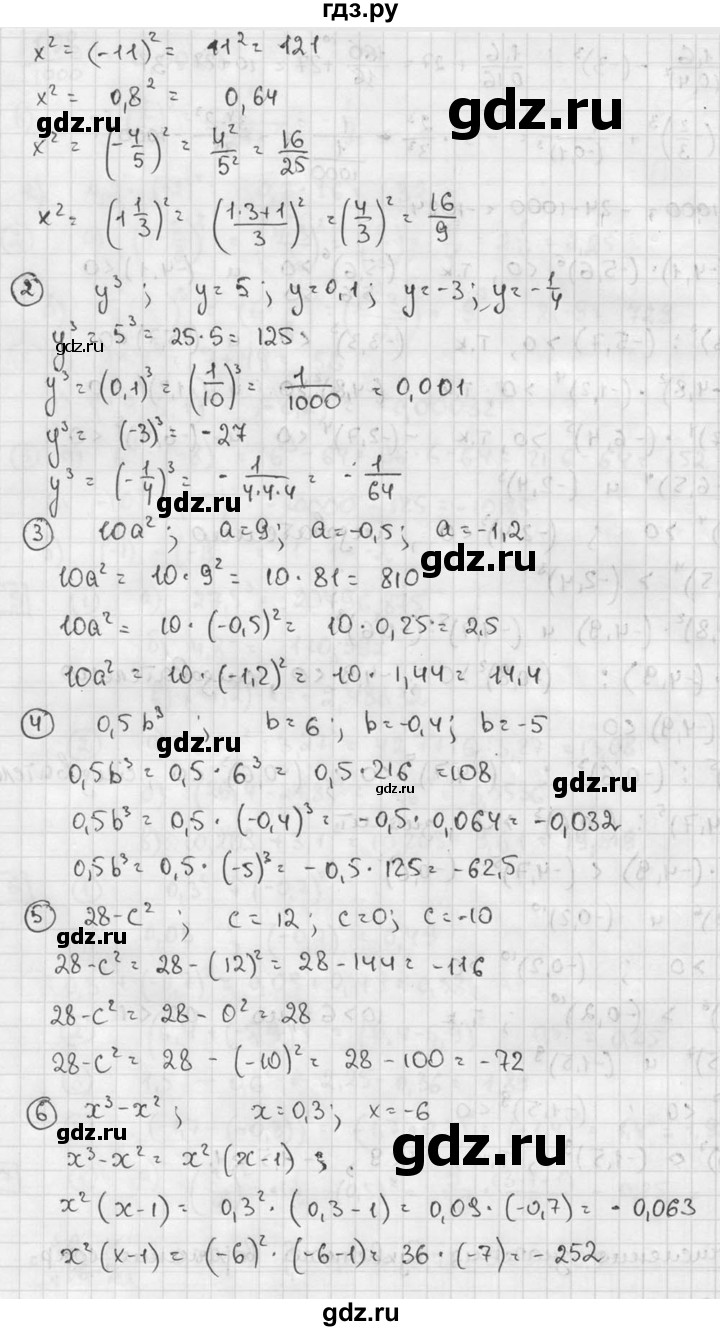 гдз.ру
x² = (-11)² = 11² = 121
x² = 0,8² = 0,64
gdz.ru
x² = (-4/5)² = 4²/5² = 16/25
gdz.ru
x² = (1 1/3)² = ((1·3+1)/3)² = (4/3)² = 16/9
② y³ ; y = 5 ; y = 0,1 ; y = -3 ; y = -1/4
y³ = 5³ = 25·5 = 125
gdz.ru
y³ = (0,1)³ = (1/10)³ = 1/1000 = 0,001
y³ = (-3)³ = -27
y³ = (-1/4)³ = - 1/(4·4·4) = - 1/64
gdz.ru
③ 10a² ; a = 9 ; a = -0,5 ; a = -1,2
10a² = 10 · 9² = 10 · 81 = 810
gdz.ru
10a² = 10 · (-0,5)² = 10 · 0,25 = 2,5
10a² = 10 · (-1,2)² = 10 · 1,44 = 14,4
④ 0,5b³ ; b = 6 ; b = -0,4 ; b = -5
gdz.ru
0,5b³ = 0,5 · 6³ = 0,5 · 216 = 108
gdz.ru
gdz.ru
0,5b³ = 0,5 · (-0,4)³ = -0,5 · 0,064 = -0,032
0,5b³ = 0,5 · (-5)³ = -0,5 · 125 = -62,5
⑤ 28-c² ; c = 12 ; c = 0 ; c = -10
gdz.ru
28-c² = 28 - (12)² = 28 - 144 = -116
28-c² = 28 - 0² = 28
28-c² = 28 - (-10)² = 28 - 100 = -72
⑥ x³-x² ; x = 0,3 ; x = -6
gdz.ru
x³-x² = x² (x-1) ;
x² (x-1) = 0,3² · (0,3-1) = 0,09 · (-0,7) = -0,063
x² (x-1) = (-6)² · (-6-1) = 36 · (-7) = -252
gdz.ru